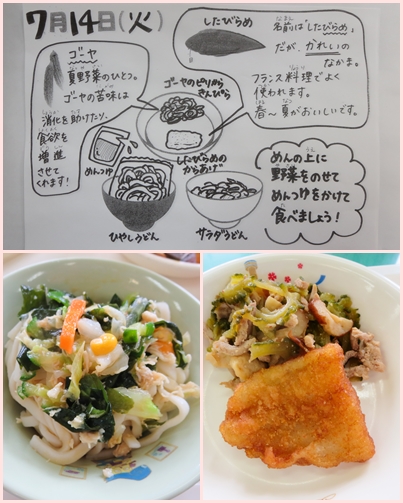 7月14日(火)
ゴーヤ
夏野菜のひとつ。
ゴーヤの苦味は
消化を助けたり、
食欲を
増進
させて
くれます!
したびらめ
名前は「したびらめ」
だが、かれいの
なかま。
フランス料理でよく
使われます。
春～夏がおいしいです。
ゴーヤのピリ辛
きんぴら
めんつゆ
したびらめの
からあげ
ひやしうどん
サラダうどん
めんの上に
野菜をのせて
めんつゆをかけて
食べましょう!